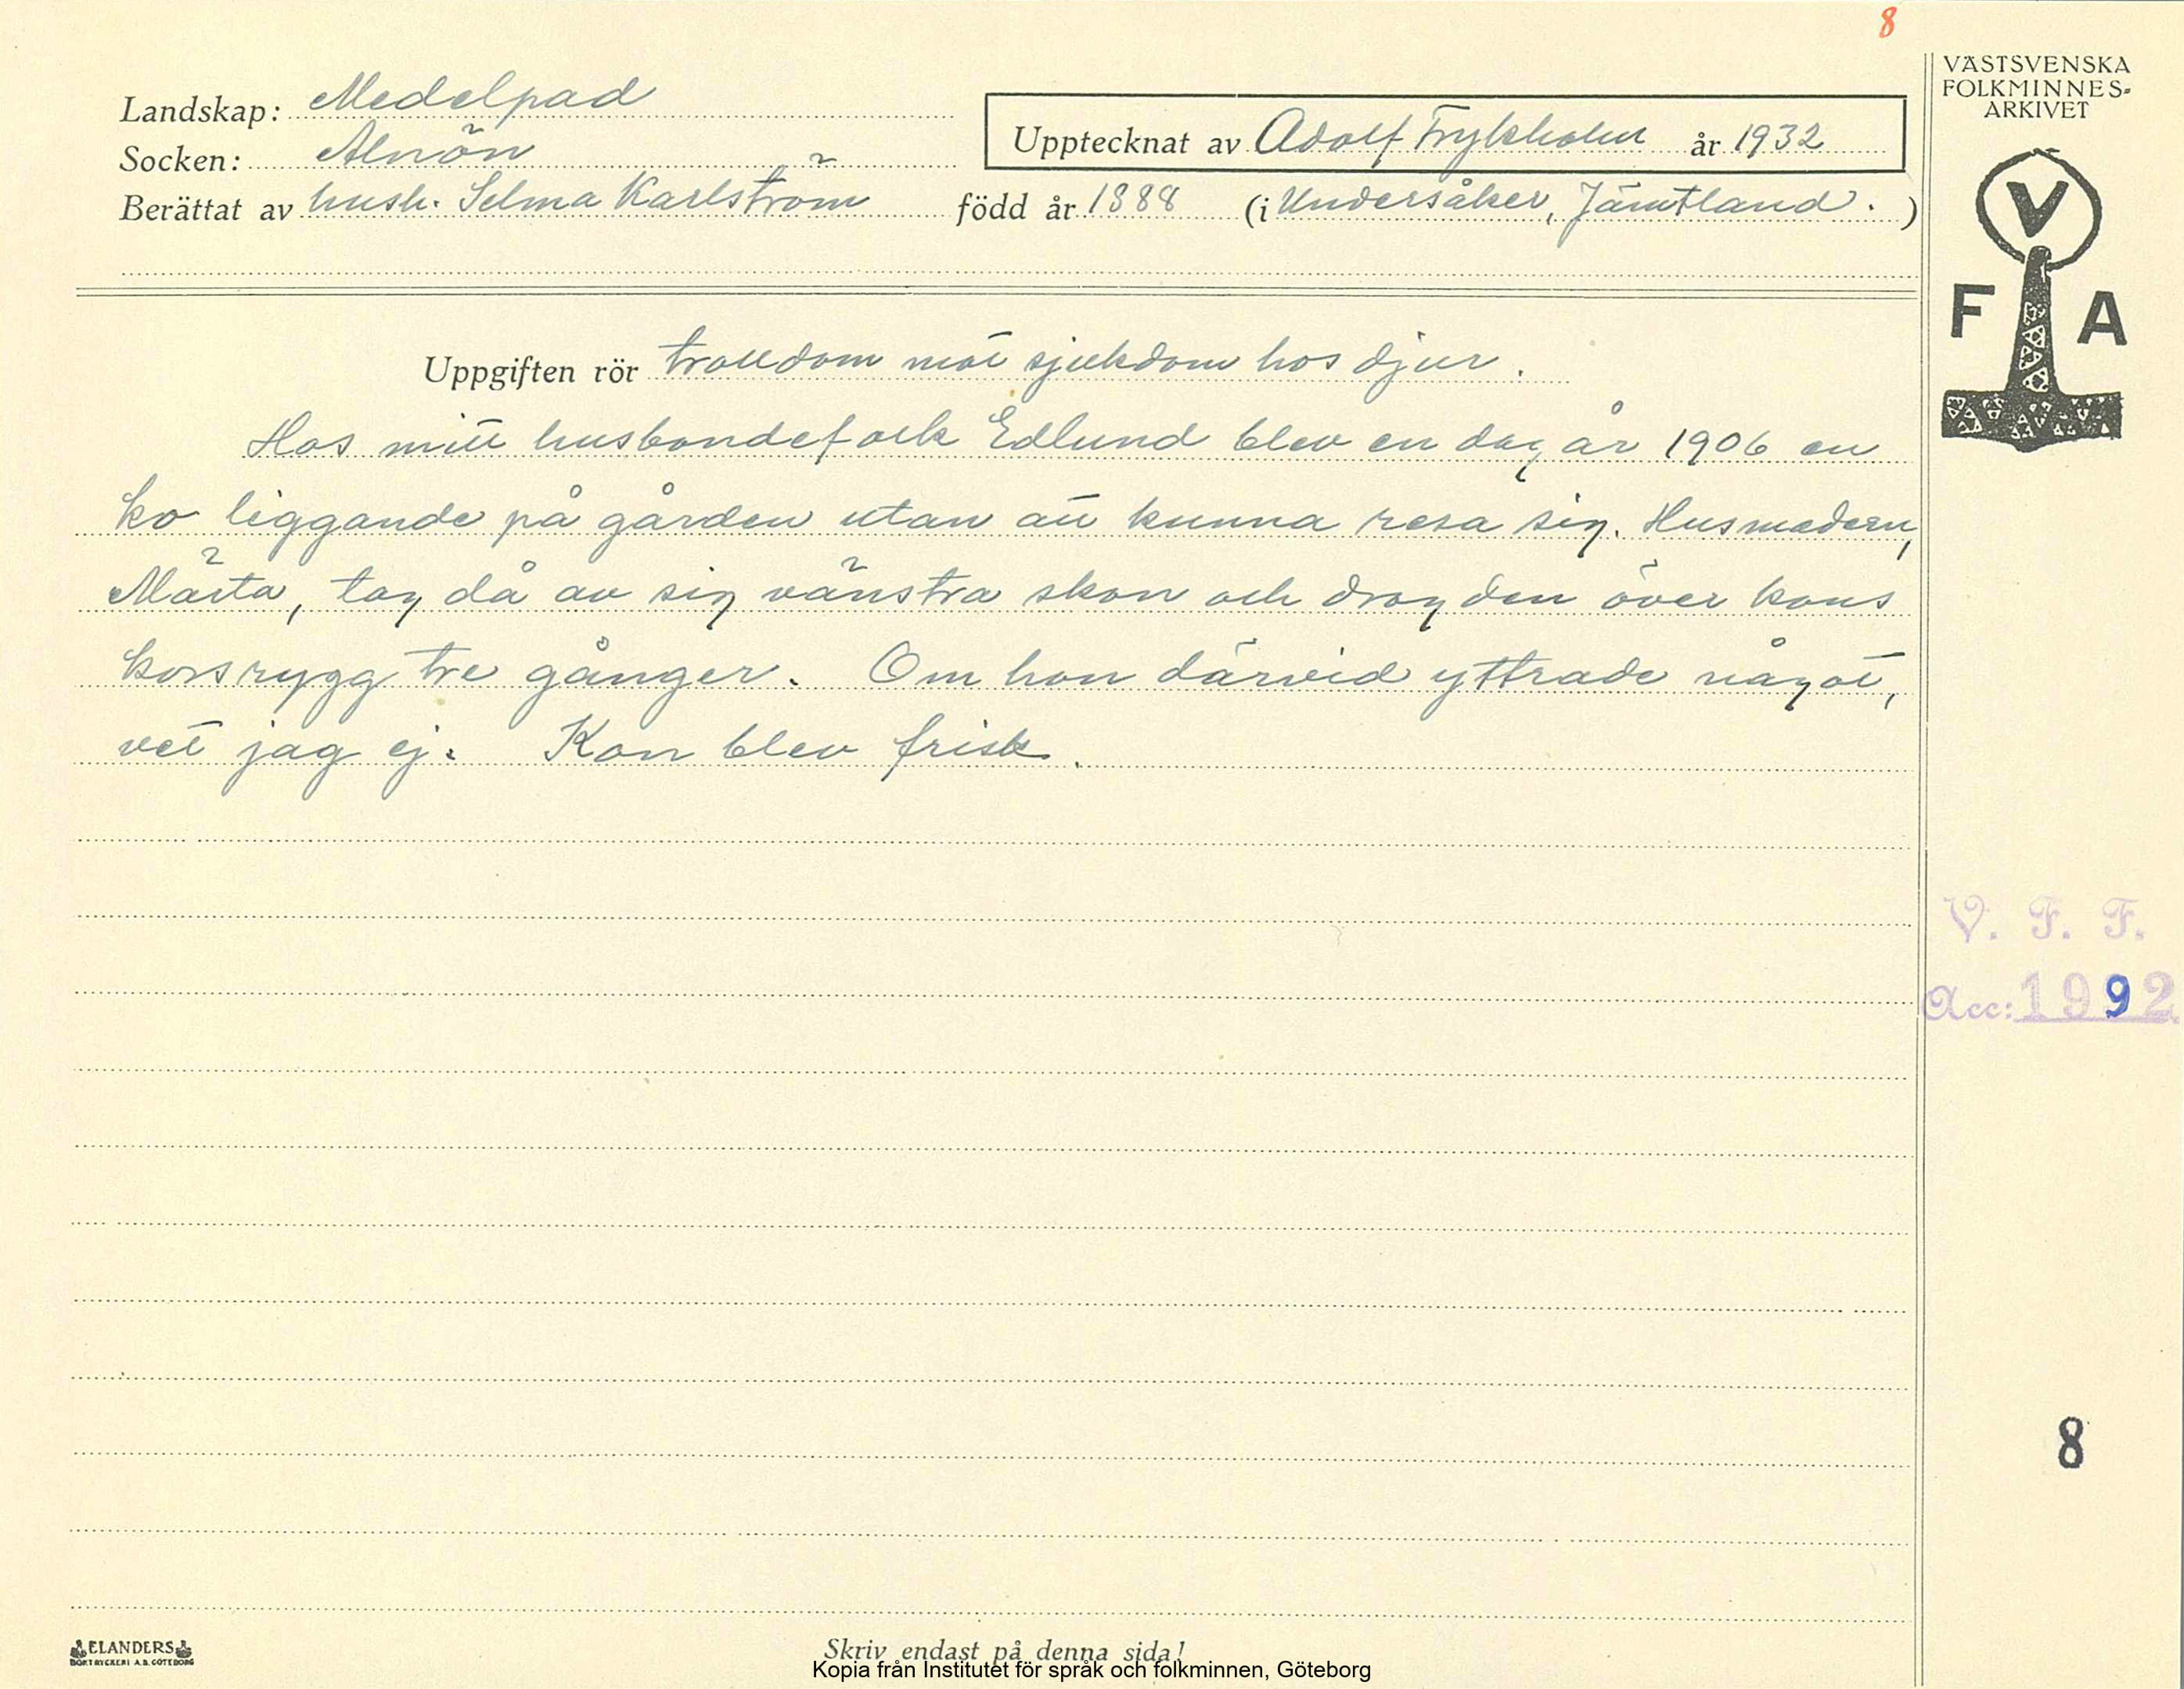 8
VÄSTSVENSKA
FOLKMINNES-
ARKIVET
Landskap: Medelpad
Upptecknat av Adolf Frykholm år 1932
Socken: Alnön
Berättat av hush. Selma Karlström född år 1888 (i Undersåker, Jämtland.)
V
F A
Uppgiften rör trolldom mot sjukdom hos djur.
Hos mitt husbondefolk Edlund blev en dag år 1906 en
ko liggande på gården utan att kunna resa sig. Husmodern,
Märta, tog då av sig vänstra skon och drog den över kons
korsrygg tre gånger. Om hon därvid yttrade något,
vet jag ej. Kon blev frisk.
V. F. F.
Acc: 1992
8
ELANDERS
BOKTRYCKERI A.B. GÖTEBORG
Skriv endast på denna sida!
Kopia från Institutet för språk och folkminnen, Göteborg